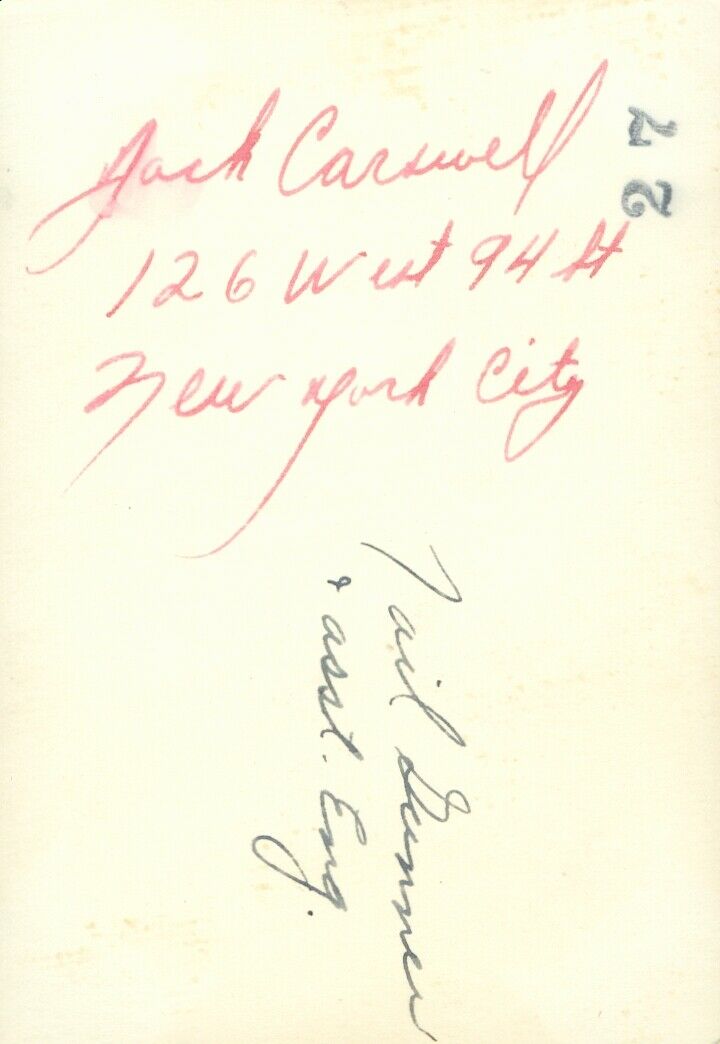 Jack Carswell
126 West 94 St
New York City
27
Tail Gunner
& asst. Eng.